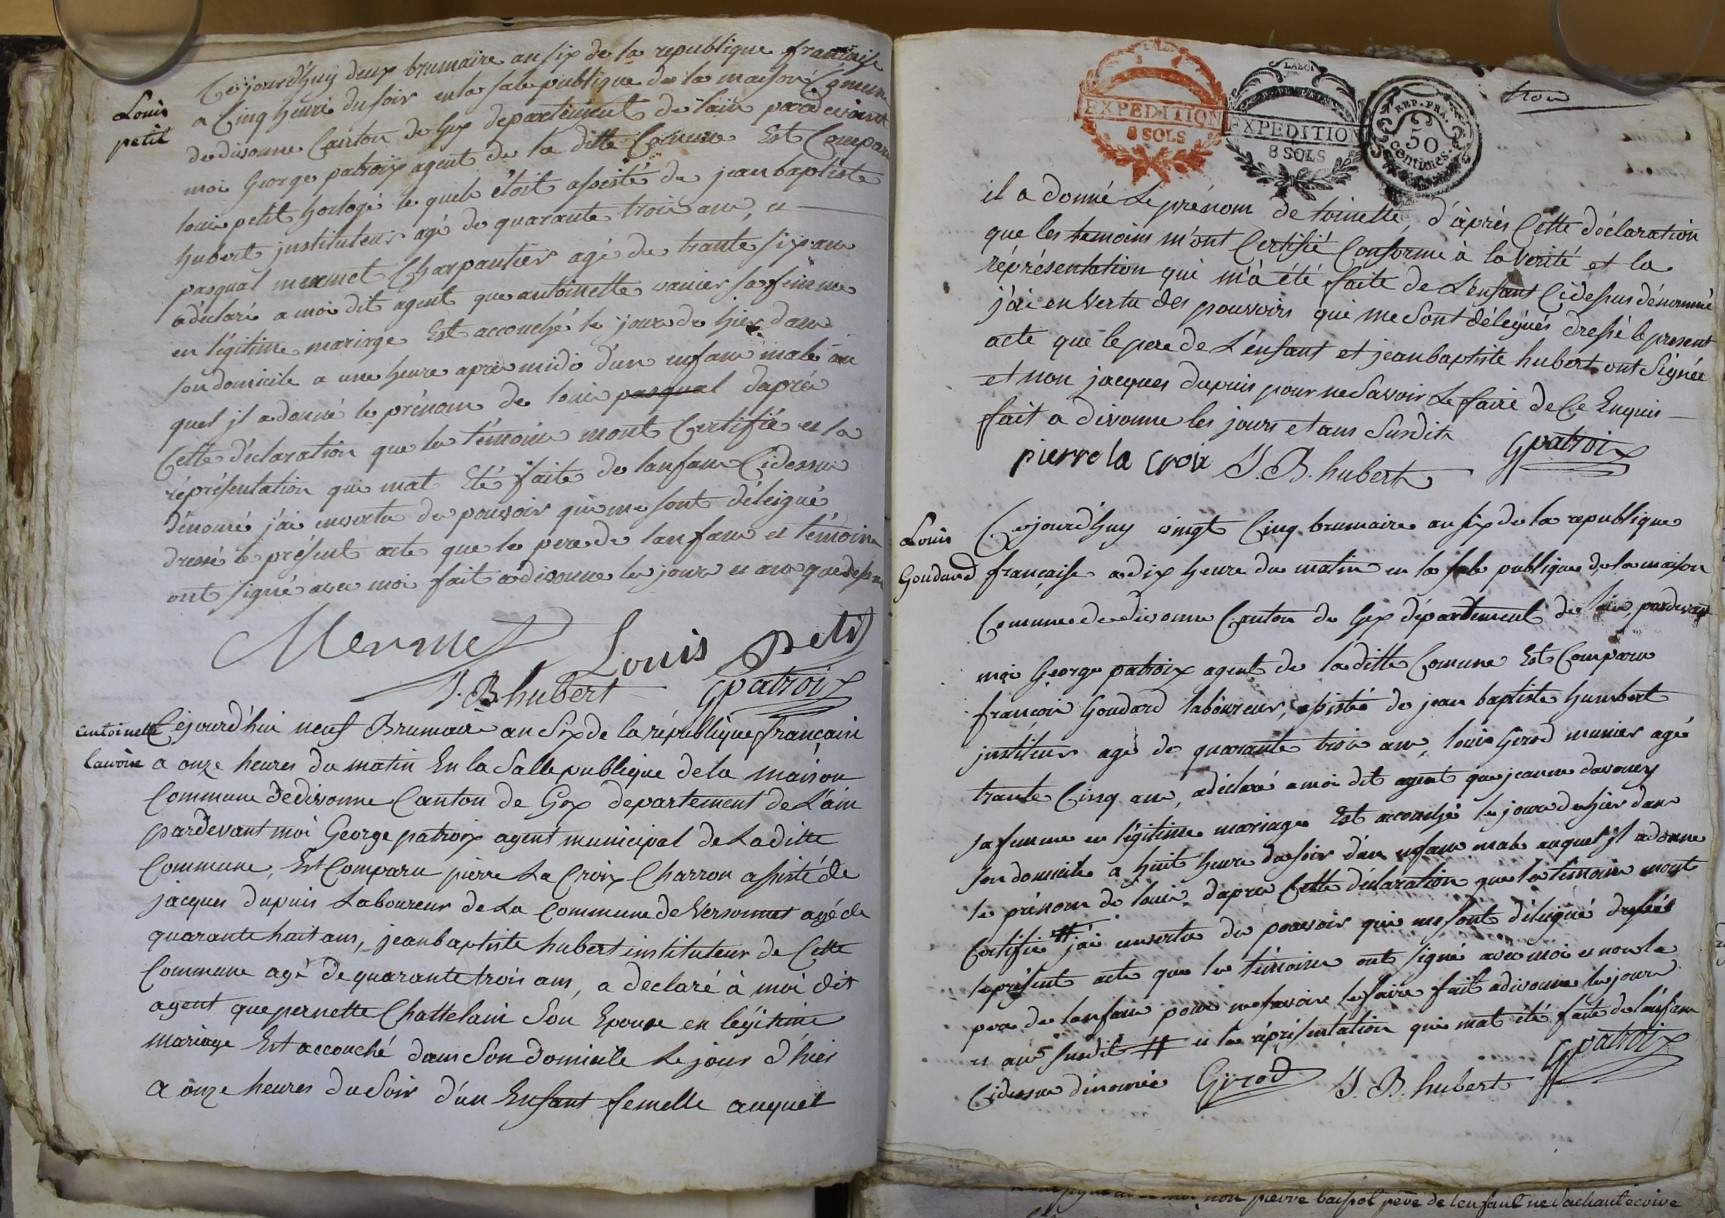 Louis
petit
Cejourd'huy deux brumaire an six de la republique francaise
a Cinq heure du soir en la sale publique de la maison Comune
de divonne Canton de Gex departement de lain pardevant
moi George patroix agent de la ditte Comune Est Comparu
louis petit horlogé le quel étoit assisté de jean baptiste
hubert jnstituteur agé de quarante trois ans, et
pasqual mermet Charpantier agé de trante six ans
a déclaré a moi dit agent que antoinette vanier sa femme
en légitime mariage Est accouché le jour de hier dans
son domicile a une heure après midi d'un enfans male au
quel jl a donné le prénom de louis pasqual daprés
Cette déclaration que les témoins mont Certifié et la
réprésentation qui mat Eté faite de lanfans Cidessus
dénomé j'ai envertu de pouvoir qui me sont déleigué
dressé le présent acte que le pere de lanfans et témoins
ont signé avec moi fait a divonne les jours et ans que dessus
Mermet Louis Petit
J. B hubert GPatroix
antoinette
Lacroix
Cejourd'hui neuf Brumaire an Six de la république francaise
a onze heures du matin En la Salle publique de la maison
Commune de divonne Canton de Gex departement de L'ain
pardevant moi George patroix agent municipal de La ditte
Commune, Est Comparu pierre La Croix Charron assisté de
jacques dupuis Laboureur de La Commune de Versonnex agé de
quarante huit ans, jean baptiste hubert instituteur de Cette
Commune agé de quarante trois ans, a declaré à moi dit
agent que pernette Chattelain Son Epouse en légitime
mariage Est accouché dans Son domicile Le jour d'hier
a onze heures du Soir d'un Enfant femelle auquel
EXPEDITION
8 SOLS
EXPEDITION
8 SOLS
REP. FRA.
50
centimes
trois
il a donné Le prénom de toinette d'après Cette déclaration
que les temoins m'ont Certifié Conforme à la Verité et la
réprésentation qui m'a été faite de L'enfant Cidessus dénommé
j'ai en Vertu des pouvoirs qui me Sont délégués dressé le present
acte que le pere de L'enfant et jean baptiste hubert ont Signée
et non jacques dupuis pour ne Savoir Le faire de Ce Enquis
fait a divonne les jours et ans Susdits
pierre la croix J. B. hubert GPatroix
Louis
Goudard
Cejourd'huy vingt Cinq brumaire an six de la republique
francaise a dix heure du matin en la sale publique de la maison
Comune de divonne Canton de Gex département de lain, pardevant
moi George patroix agent de la ditte Comune Est Comparu
francois Goudard laboureur, assisté de jean baptiste humbert
jnstituteur agé de quarante trois ans, louis Girod munier agé
trante Cinq ans, a déclaré a moi dit agent que jeanne davoney
sa femme en légitime mariage Est accouché le jour de hier dans
son domicile a huit heure du soir d'un enfans male auquel jl a donne
le prénom de louis daprés Cette déclaration que les témoins mont
Certifie # j'ai envertu de pouvoir qui me sont déleigué dressé
le présent acte que les témoins ont signé avec moi et non le
pere de lanfans pour ne savoire le faire fait a divonne les jours
et ans susdit # et la réprésentation qui mat été faite de lanfans
Cidessus dénomée Girod J. B. hubert GPatroix
non pierre baispot pere de lenfant ne sachant écrire